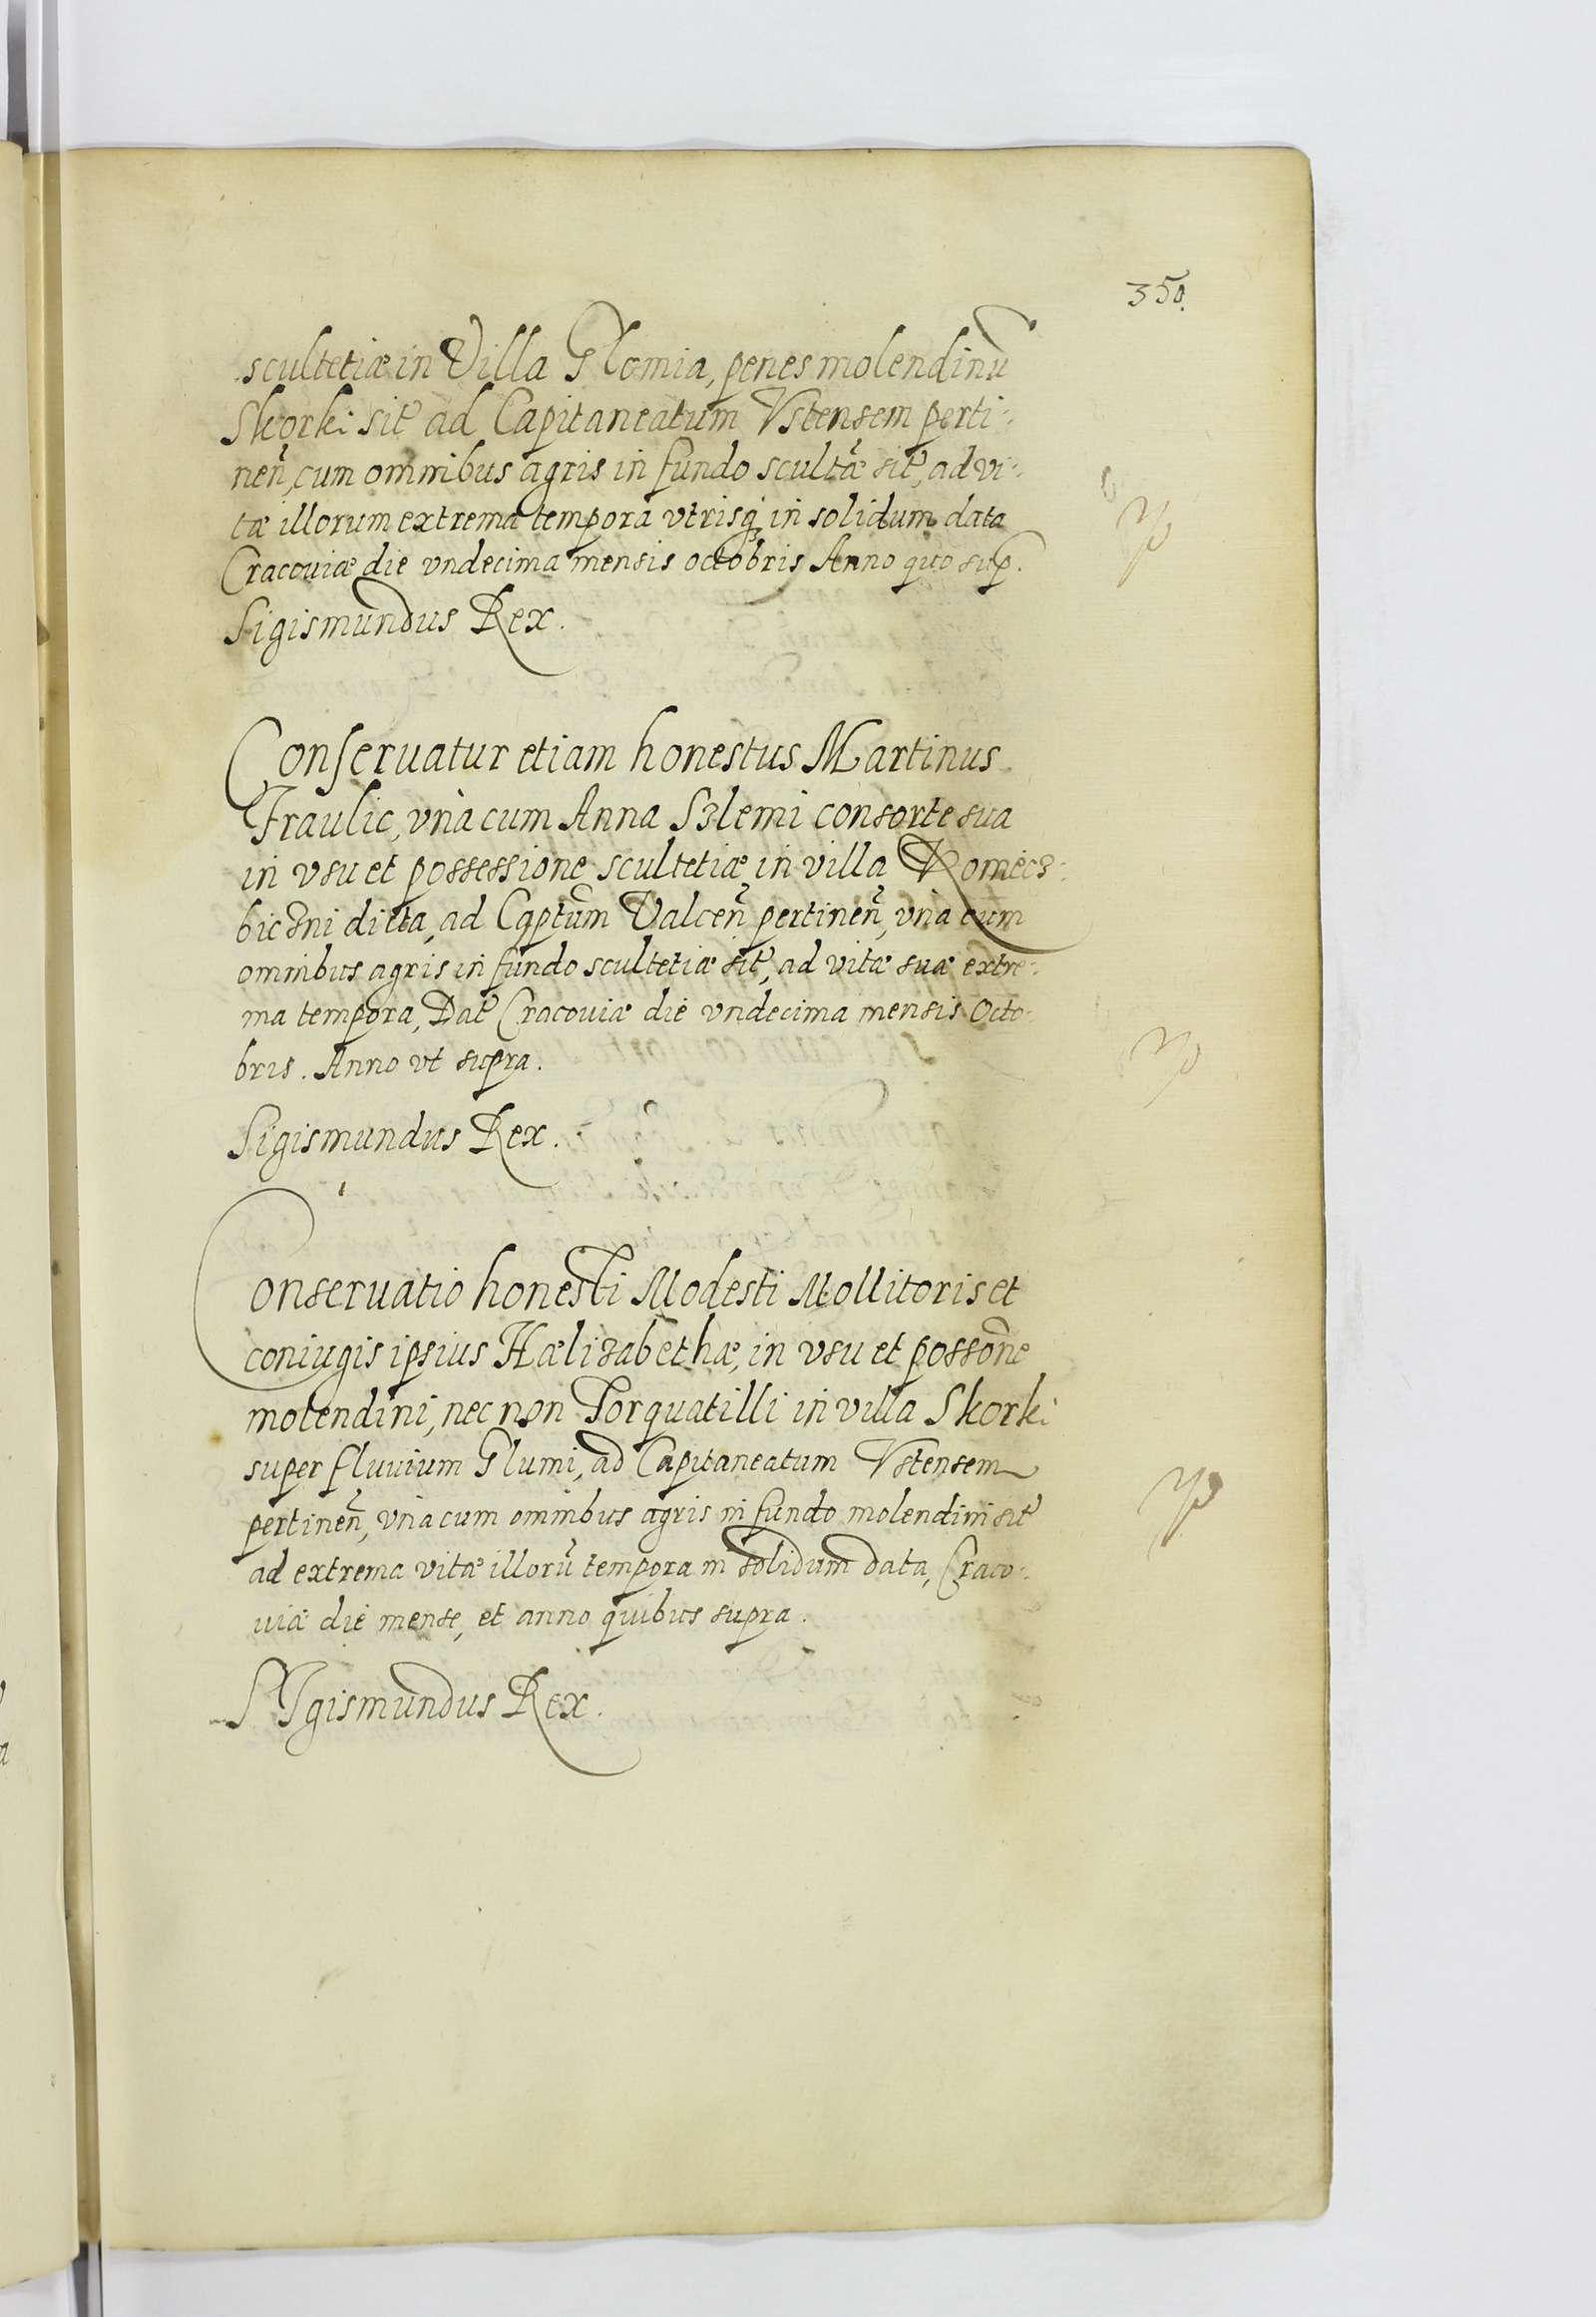 350.
scultetiæ in Villa Glomia, penes molendinū
Skorki sit̃ ad Capitaneatum Vstensem perti:
neñ, cum omnibus agris in fundo scultæ̃ sit̃, ad vi:
tæ illorum extrema tempora vtrisq; in solidum data
Cracouiæ die vndecima mensis octobris Anno quo sup.
Sigismundus Rex.
Conseruatur etiam honestus Martinus
Fraulic, vnà cum Anna Szlemi consorte sua
in vsu et possessione scultetiæ in villa Romecz:
biczni dicta, ad Cap̃tum Valceñ pertineñ, vnà cum
omnibus agris in fundo scultetiæ sit̃, ad vitæ suæ extre:
ma tempora, Dat̃ Cracouiæ die vndecima mensis Octo:
bris. Anno vt supra.
Sigismundus Rex.
Conseruatio honesti Modesti Mollitoris et
coniugis ipsius Hælizabethæ, in vsu et possone
molendini, nec non Torquatilli in villa Skorki
super fluuium Glumi, ad Capitaneatum Vstensem
pertineñ, vnà cum omnibus agris in fundo molendini sit̃
ad extrema vitæ illorū tempora in solidum data, Craco:
uiæ die mense, et anno quibus supra.
SIgismundus Rex.